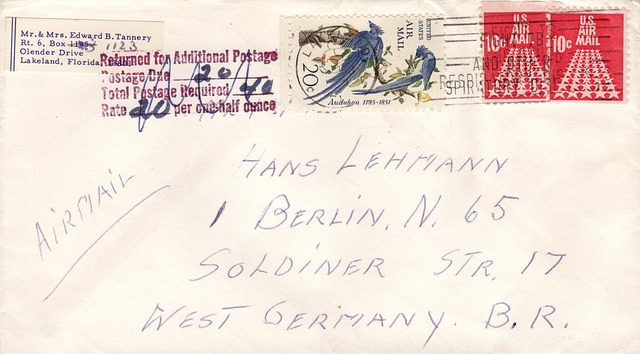 Mr. & Mrs. Edward B. Tannery
Rt. 6, Box 1123
Olender Drive
Lakeland, Florida
Returned for Additional Postage
Postage Due 20
Total Postage Required 40
Rate 20 per one half ounce
UNITED STATES
AIR MAIL
20c
Audubon 1785-1851
AND OTHER
RESPIRATORY
U.S. AIR MAIL
10c
U.S. AIR MAIL
10c
AIRMAIL
HANS LEHMANN
1 BERLIN, N. 65
SOLDINER STR. 17
WEST GERMANY. B.R.